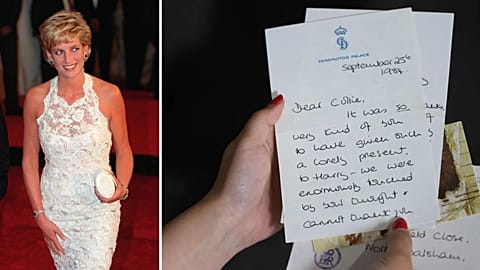 KENSINGTON PALACE
September 25th
1984.
Dear Collie,
It was so
very kind of you
to have given such
a lovely present,
to Harry - we were
enormously touched
by your thought &
cannot thank you
Close,
Walsham,